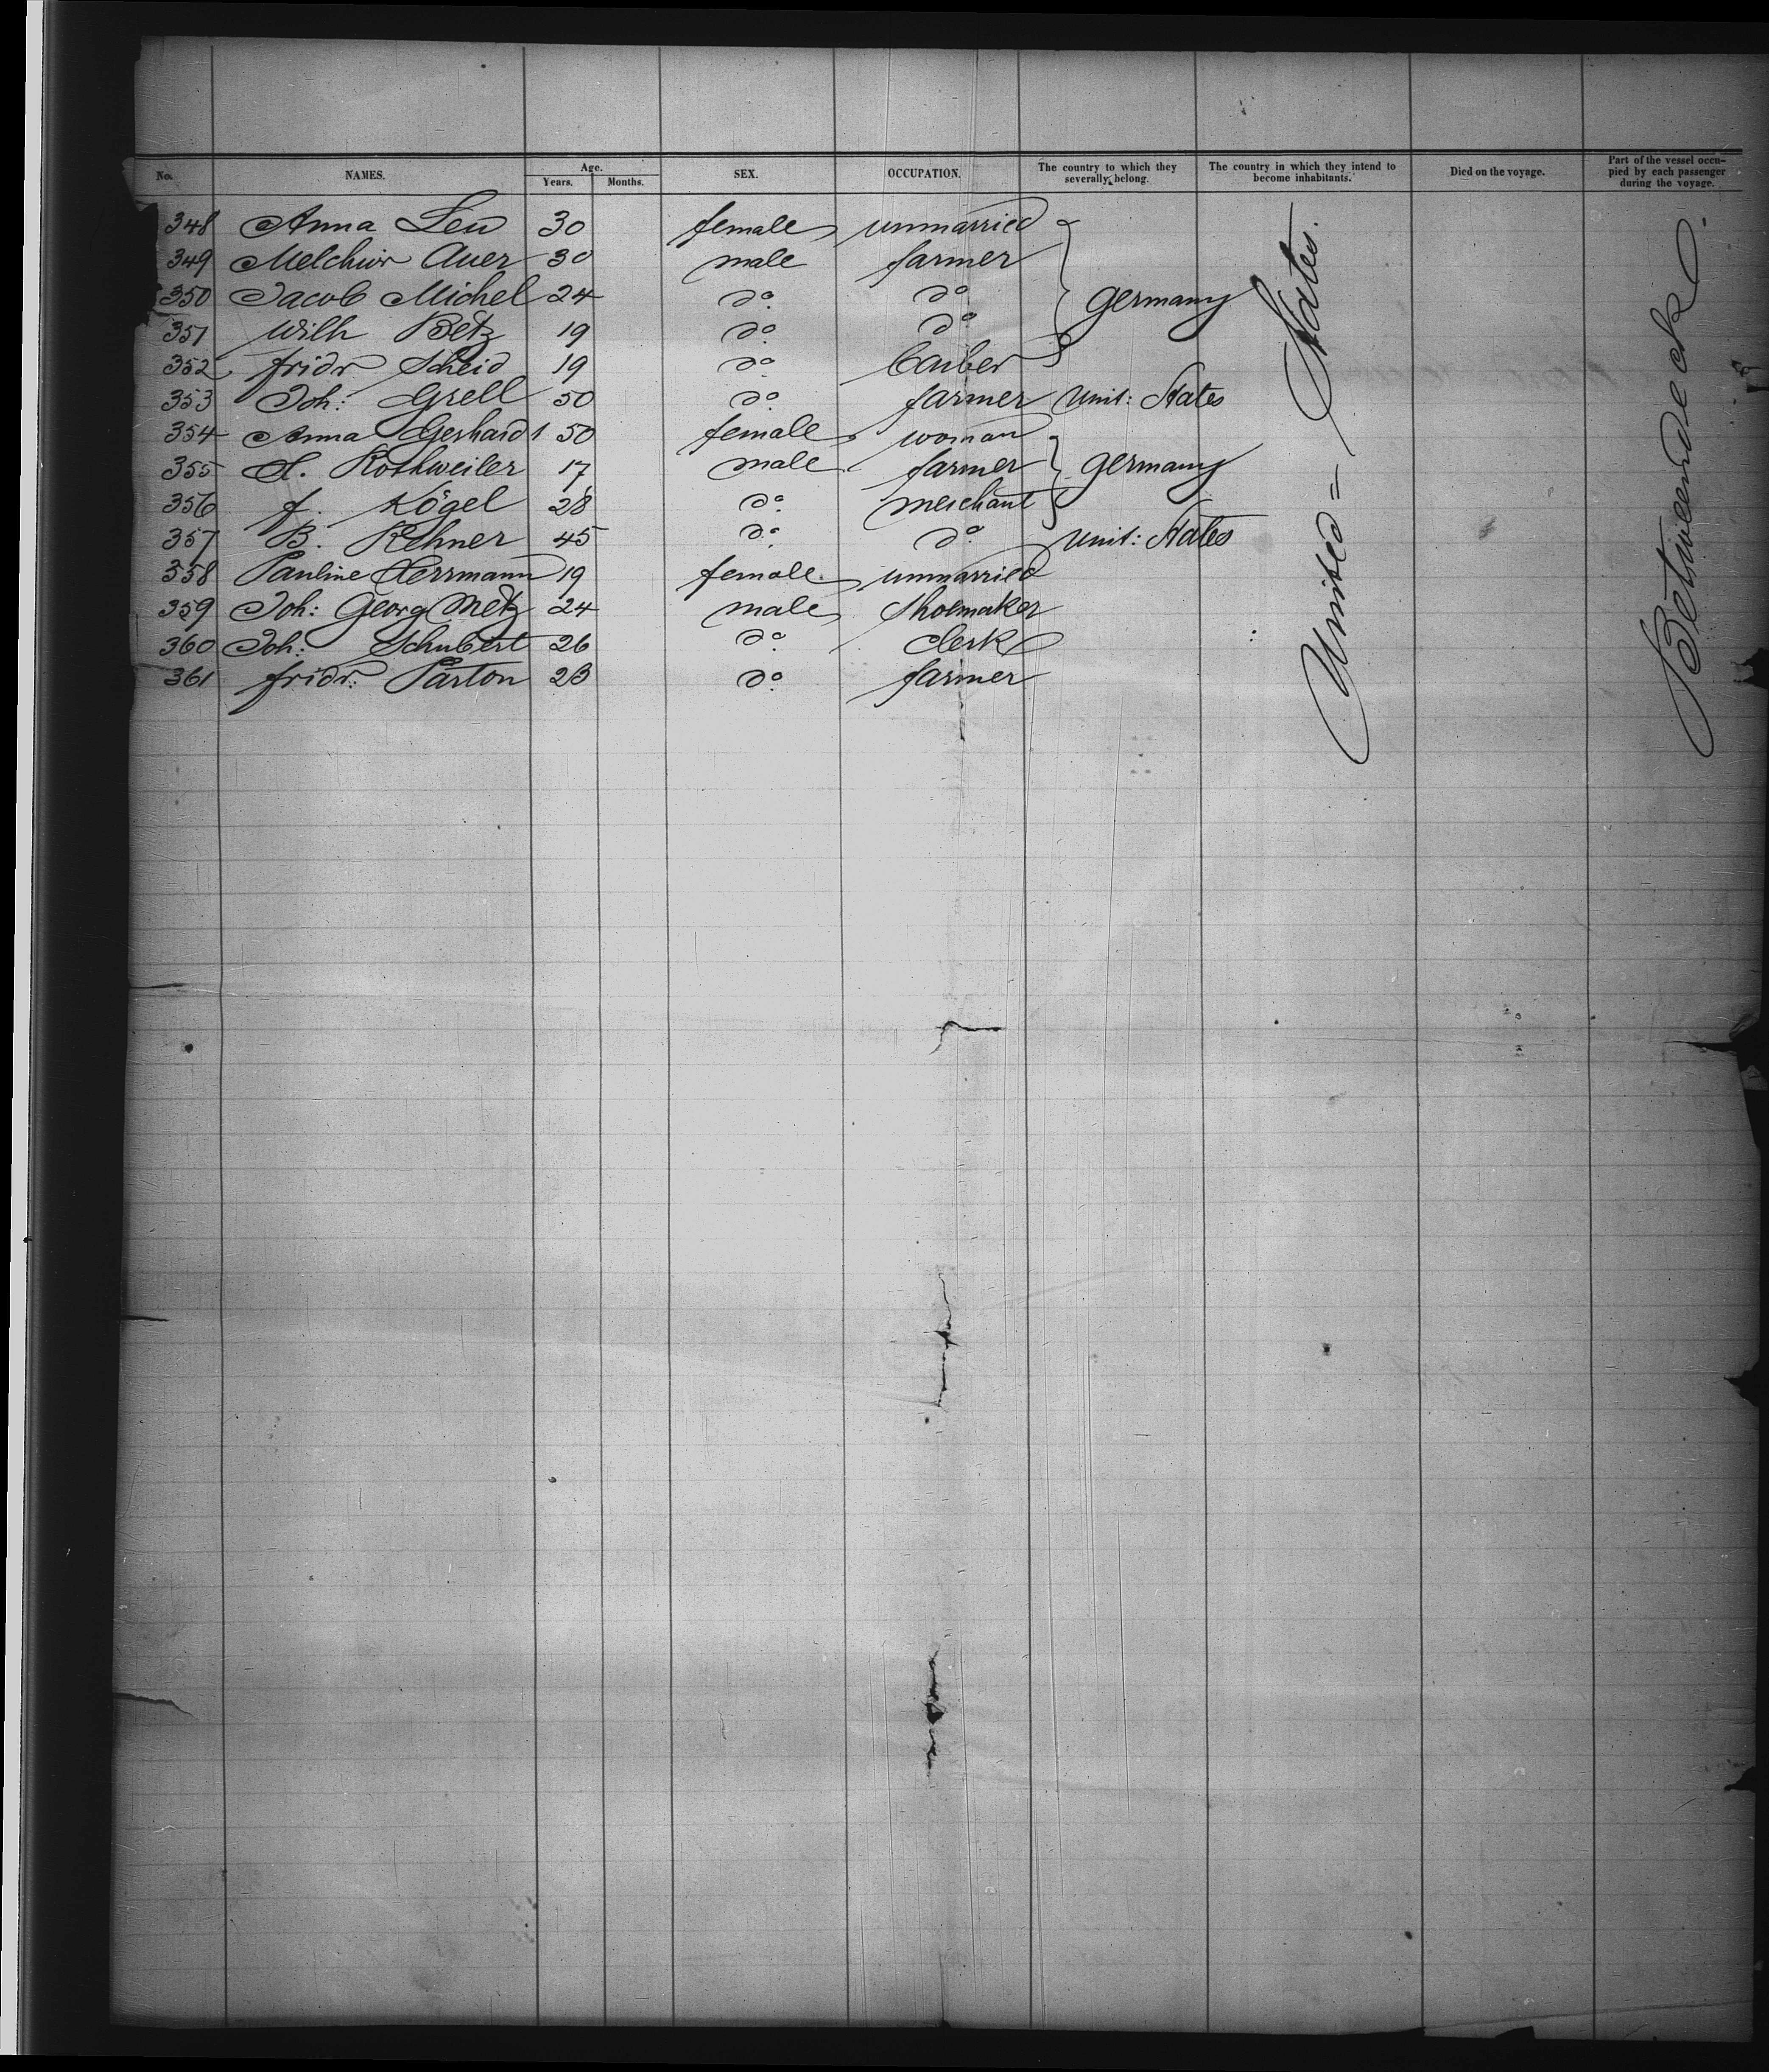 No. NAMES. Age. Years. Months. SEX. OCCUPATION. The country to which they severally belong. The country in which they intend to become inhabitants. Died on the voyage. Part of the vessel occu-pied by each passenger during the voyage.
348 Anna Leu 30 female unmarried
349 Melchior Auer 30 male farmer
350 Jacob Michel 24 do do Germany
351 Wilh Betz 19 do do
352 fridr Scheid 19 do
353 Joh: Grell 50 do farmer Unit: States
354 Anna Gerhardt 50 female woman
355 Rothweiler 17 male farmer Germany
356 f. Kögel 28 do merchant
357 B. Rehner 45 do do Unit: States
358 Pauline Herrmann 19 female unmarried
359 Joh: Georg Metz 24 male Shoemaker
360 Joh: Schubert 26 do Clerk
361 fridr: Parton 23 do farmer
United = States.
Betweendeck.